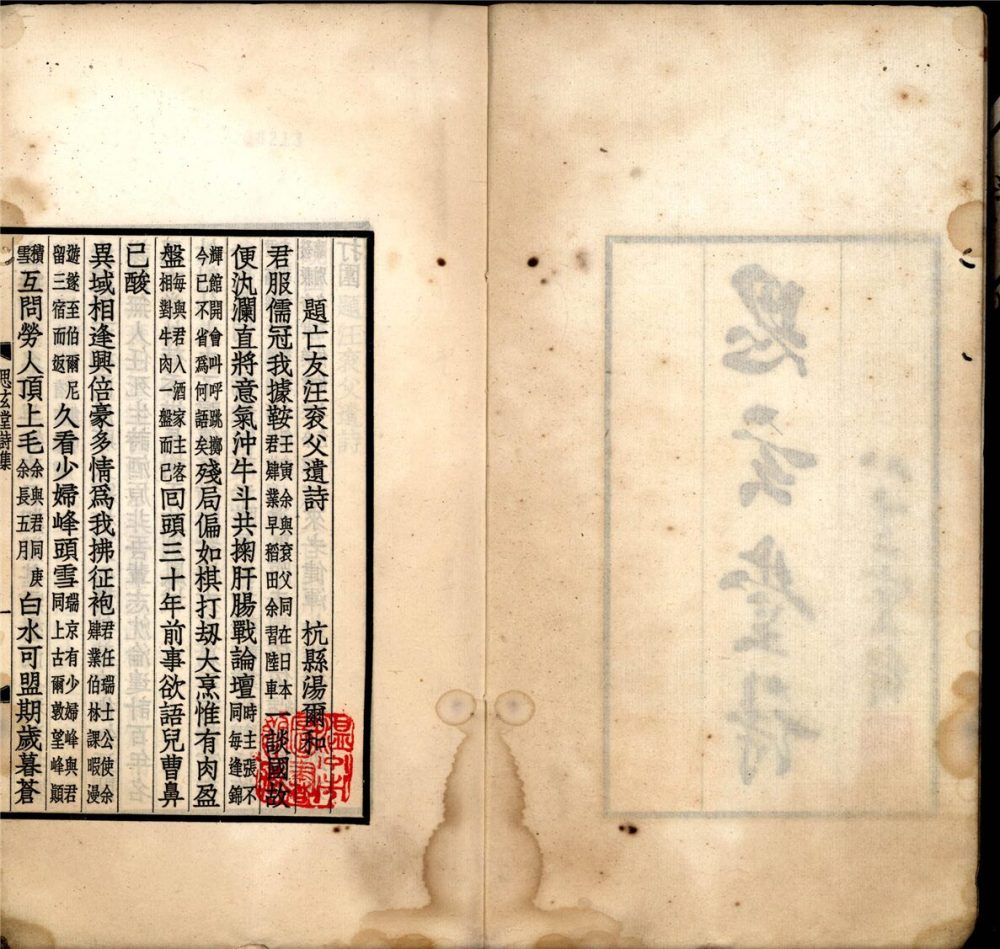 題亡友汪袞父遺詩　杭縣湯爾和
君服儒冠我據鞍壬寅余與袞父同在日本君肄業早稻田余習陸車一談國故
便氿瀾直將意氣沖牛斗共掬肝腸戰論壇時主張不同每逢錦
輝館開會叫呼跳擲今已不省爲何語矣殘局偏如棋打刼大烹惟有肉盈
盤每與君入酒家主客相對牛肉一盤而已回頭三十年前事欲語兒曹鼻
已酸
異域相逢興倍豪多情爲我拂征袍君任瑞士公使余肄業伯林課暇漫
遊遂至伯爾尼留三宿而返久看少婦峰頭雪瑞京有少婦峰與君同上古爾敦望峰顛
積雪互問勞人頂上毛余與君同庚余長五月白水可盟期歲暮蒼
思玄堂詩集　一